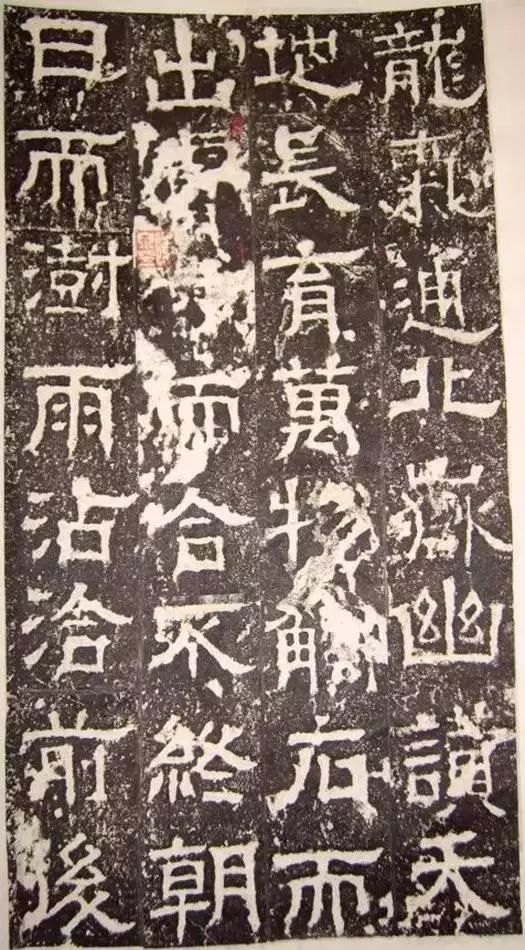 龍氣通北嶽幽讚天
地長育萬物觸石而
出而合不終朝
日而澍雨沾洽前後